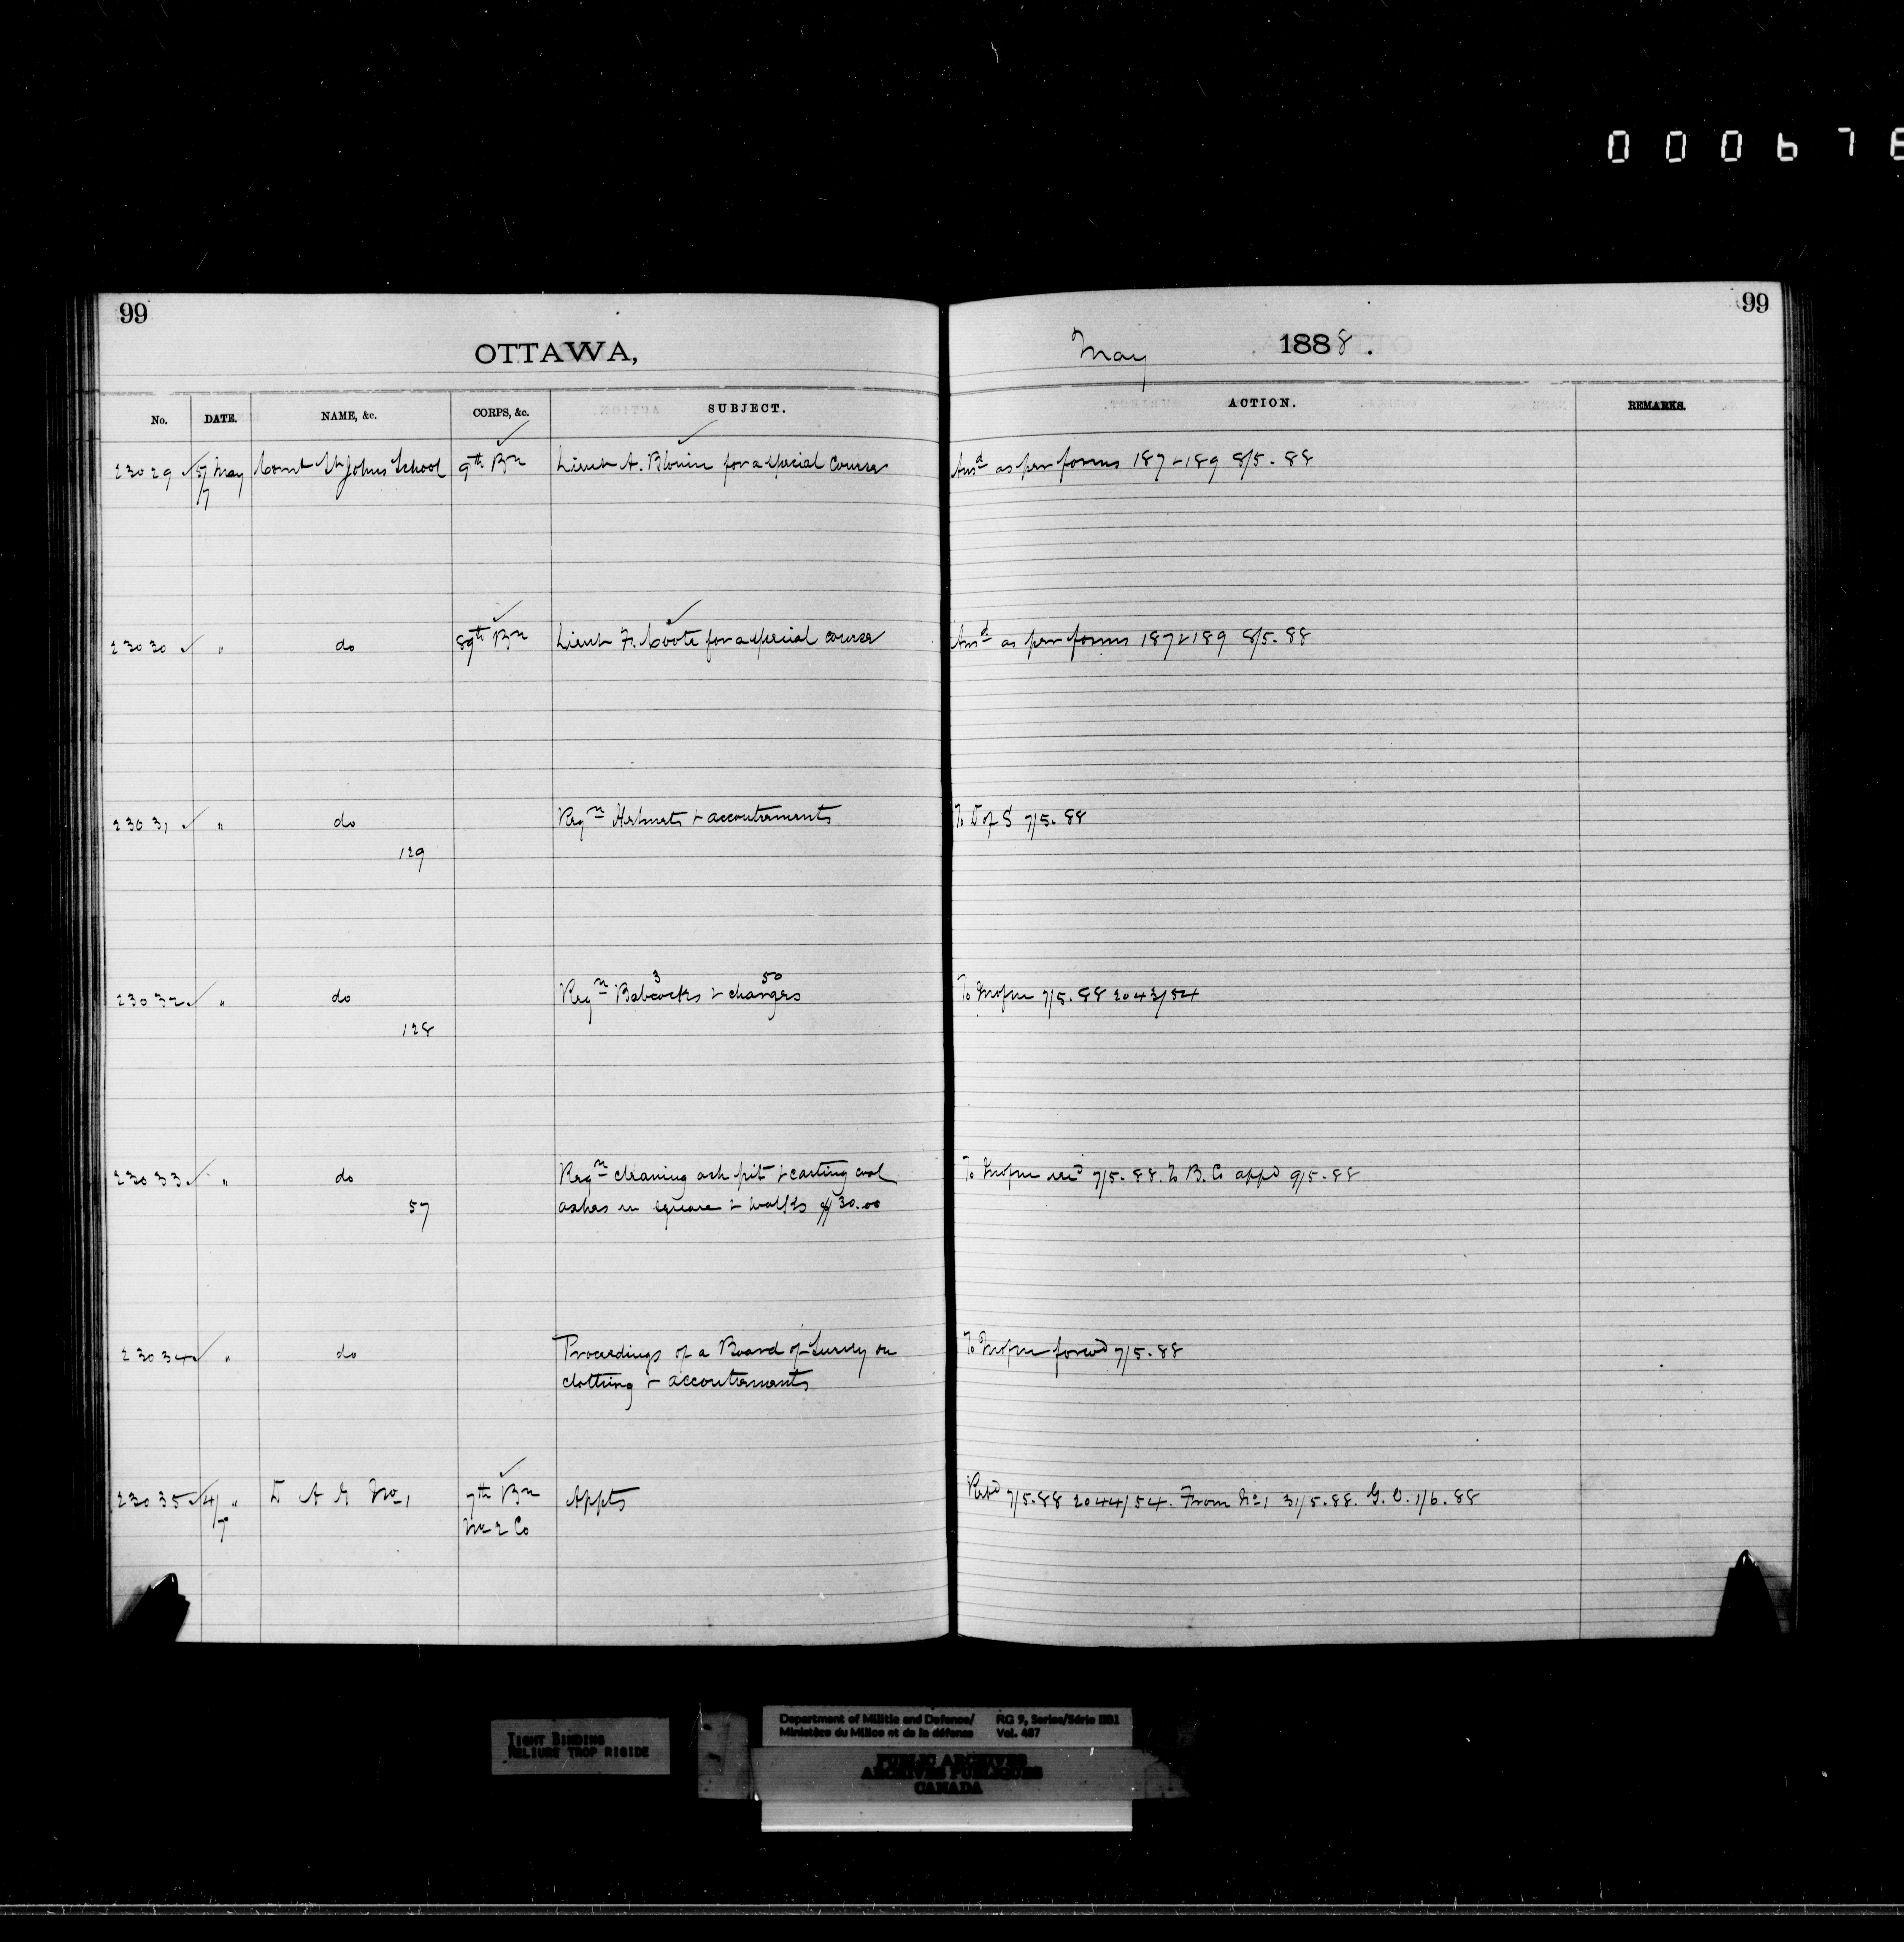 000678
99
99
OTTAWA,
May 1888.
No. DATE. NAME, &c. CORPS, &c. SUBJECT. ACTION. REMARKS.
23029 ✓ 5/7 May Comt St Johns School 9th Bn Lieut A. Blouin for a special course Ansd as per forms 187 & 189 8/5.88
23030 ✓ " do 89th Bn Lieut F. Coote for a special course Ansd as per forms 187 & 189 8/5.88
23031 ✓ " do Reqn Helmets & accoutrements To D of S 7/5.88
129
3 50
23032 ✓ " do Reqn Babcocks & charges To 7/5.88 2043/54
128
23033 ✓ " do Reqn cleaning ash pit & carting coal To 7/5.88. To B. Co appd 9/5.88
57 ashes in square & walks $30.00
23034 ✓ " do Proceedings of a Board of Survey on To forwd 7/5.88
clothing & accoutrements
23035 ✓ 4/7 " D A G No 1 7th Bn Appts Retd 7/5.88 2044/54. From No 1 31/5.88. G.O. 1/6.88
No 2 Co
TIGHT BINDING
RELIURE TROP RIGIDE
Department of Militia and Defence/ RG 9, Series/Série IIB1
Ministère du Milice et de la défense Vol. 487
PUBLIC ARCHIVES
ARCHIVES PUBLIQUES
CANADA